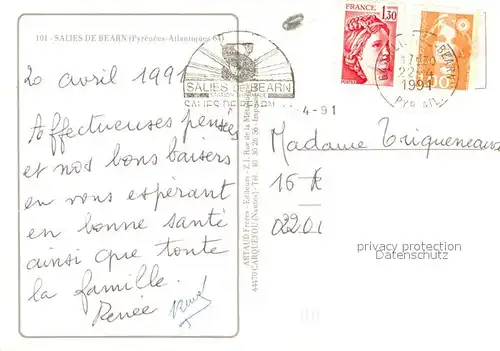 101 - SALIES DE BEARN (Pyrénées-Atlantiques 64)
FRANCE
1,30
POSTES
SALIES DE BEARN
SALIES DE BEARN
-4-91
BEARN
1991
PYR. ATL.
20 avril 1991
Affectueuses pensées
et nos bons baisers
en vous espérant
en bonne santé
ainsi que toute
la famille.
Renée
ARTAUD Frères - Editeurs - Z.I. Rue de la Mét
44470 CARQUEFOU (Nantes) - Tél. 40 30 20 56 - Imp
Madame Triqueneaux
16 R
0220
privacy protection
Datenschutz